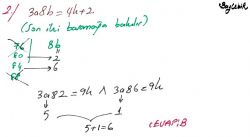 2/ 3a8b = 4k+2
(Son iki basamağa bakılır)
76 8b
80 → 2
84 → 6
88
3a82 = 9k ∧ 3a86 = 9k
5 1
5+1=6
CEVAP: B